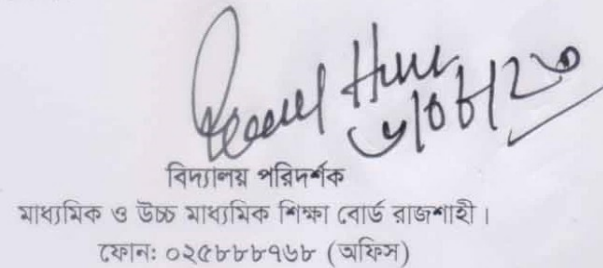 বিদ্যালয় পরিদর্শক
মাধ্যমিক ও উচ্চ মাধ্যমিক শিক্ষা বোর্ড রাজশাহী।
ফোন: ০২৫৮৮৮৭৬৮ (অফিস)